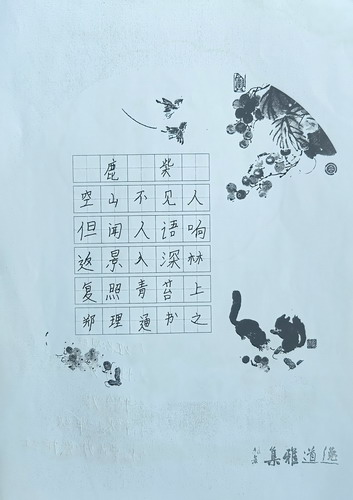 鹿柴
空山不见人
但闻人语响
返景入深林
复照青苔上
郑理通书之
集雅道